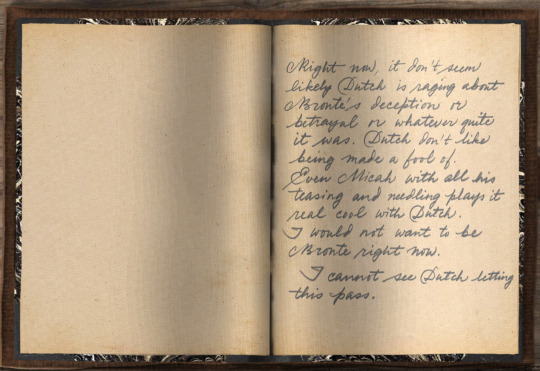 Right now, it don't seem
likely Dutch is raging about
Bronte's deception or
betrayal or whatever quite
it was. Dutch don't like
being made a fool of.
Even Micah with all his
teasing and needling plays it
real cool with Dutch.
I would not want to be
Bronte right now.
I cannot see Dutch letting
this pass.